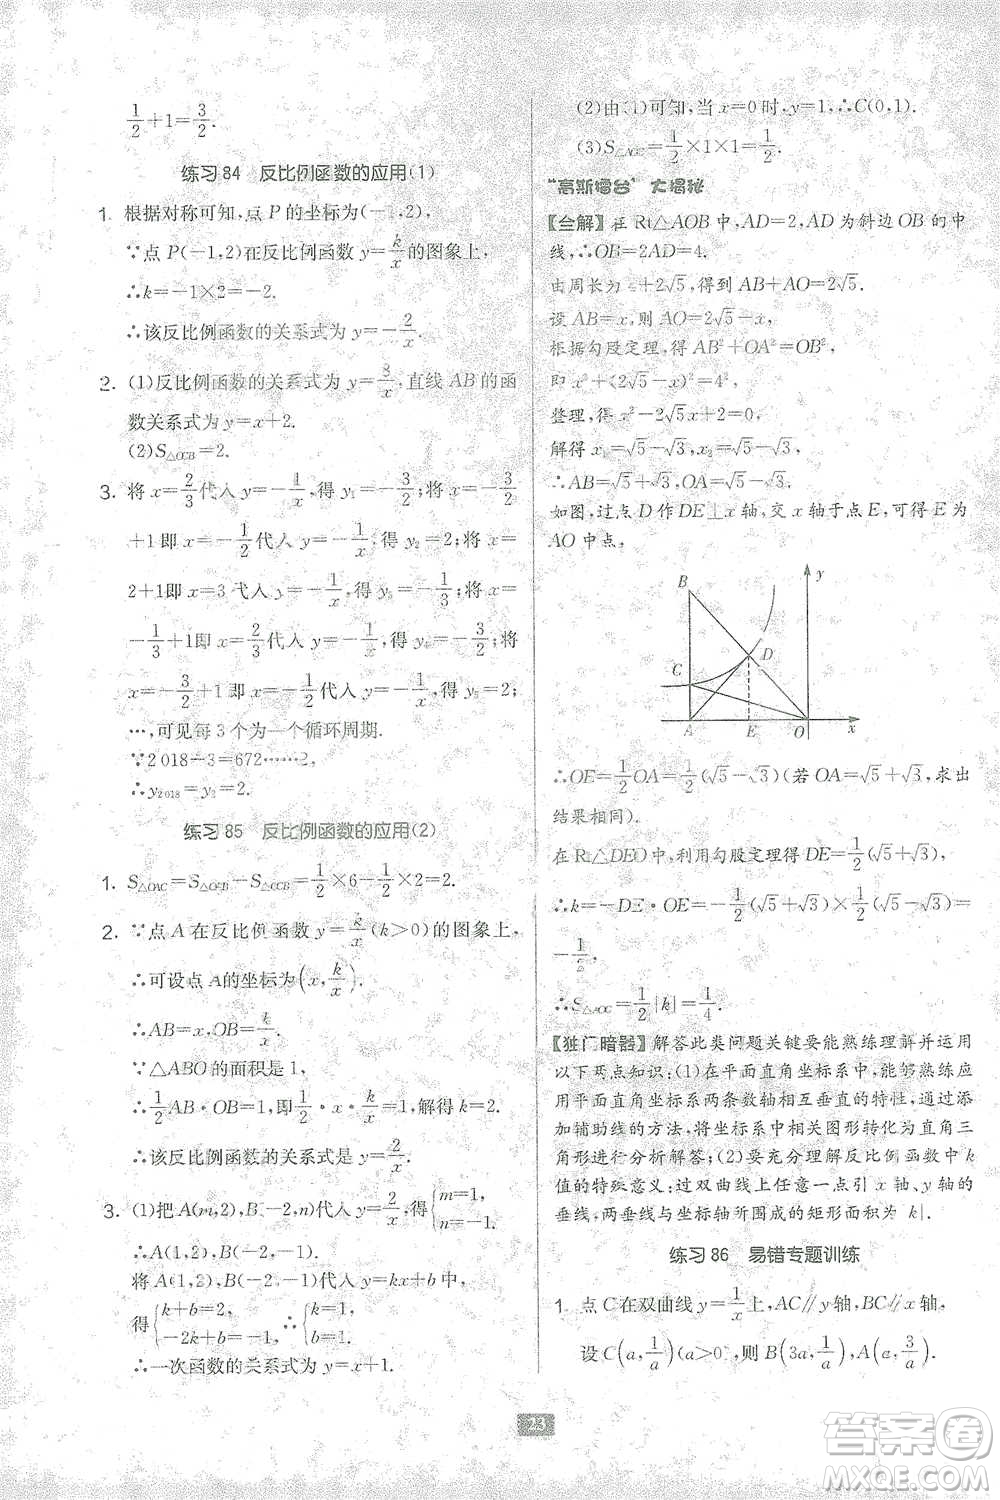 1/2+1=3/2.
练习84 反比例函数的应用(1)
1. 根据对称可知,点P的坐标为(-1,2),
∵点P(-1,2)在反比例函数y=k/x的图象上,
∴k=-1×2=-2.
∴该反比例函数的关系式为y=-2/x.
2. (1)反比例函数的关系式为y=8/x,直线AB的函
数关系式为y=2x.
(2)S△OCB=2.
3. 将x=2/3代入y=-1/x,得y₁=-3/2;将x=-3/2
+1即x=-1/2代入y=-1/x,得y₂=2;将x=
2+1即x=3代入y=-1/x,得y₃=-1/3;将x=
-1/3+1即x=2/3代入y=-1/x,得y₄=-3/2;将
x=-3/2+1即x=-1/2代入y=-1/x,得y₅=2;
…,可见每3个为一个循环周期.
∵2 018÷3=672……2.
∴y₂ ₀₁₈=y₂=2.
练习85 反比例函数的应用(2)
1. S△OAC=S△OCB-S△OCB=1/2×6-1/2×2=2.
2. ∵点A在反比例函数y=k/x(k>0)的图象上,
∴可设点A的坐标为(x,k/x).
∴AB=x,OB=k/x.
∵△ABO的面积是1,
∴1/2AB·OB=1,即1/2·x·k/x=1,解得k=2.
∴该反比例函数的关系式是y=2/x.
3. (1)把A(m,2),B(-2,n)代入y=2/x,得{m=1, n=-1.
∴A(1,2),B(-2,-1).
将A(1,2),B(-2,-1)代入y=kx+b中,
得{k+b=2, -2k+b=-1,∴{k=1, b=1.
∴一次函数的关系式为y=x+1.
(2)由(1)可知,当x=0时,y=1,∴C(0,1).
(3)S△AOC=1/2×1×1=1/2.
“高斯擂台”大揭秘
【全解】在Rt△AOB中,AD=2,AD为斜边OB的中
线,∴OB=2AD=4.
由周长为4+2√5,得到AB+AO=2√5.
设AB=x,则AO=2√5-x,
根据勾股定理,得AB²+AO²=OB²,
即x²+(2√5-x)²=4²,
整理,得x²-2√5x+2=0,
解得x₁=√5-√3,x₂=√5+√3.
∴AB=√5+√3,OA=√5-√3.
如图,过点D作DE⊥x轴,交x轴于点E,可得E为
AO中点,
B
y
D
C
A
E
O
x
∴OE=1/2OA=1/2(√5-√3)(若OA=√5+√3,求出
结果相同).
在Rt△DEO中,利用勾股定理得DE=1/2(√5+√3).
∴k=-DE·OE=-1/2(√5+√3)×1/2(√5-√3)=
-1/2.
∴S△AOC=1/2|k|=1/4.
【独门暗器】解答此类问题关键要能熟练理解并运用
以下两点知识:(1)在平面直角坐标系中,能够熟练应
用平面直角坐标系两条数轴相互垂直的意义,通过添
加辅助线的方法,将坐标系中相关图形转化为直角三
角形进行分析解答;(2)要充分理解反比例函数中k
值的特殊意义:过双曲线上任意一点引x轴、y轴的
垂线,两垂线与坐标轴所围成的矩形面积为|k|.
练习86 易错专题训练
1. 点C在双曲线y=1/x上,AC∥y轴,BC∥x轴,
设C(a,1/a)(a>0),则B(3a,1/a),A(a,3/a).
23
答案圈
MXQE.COM